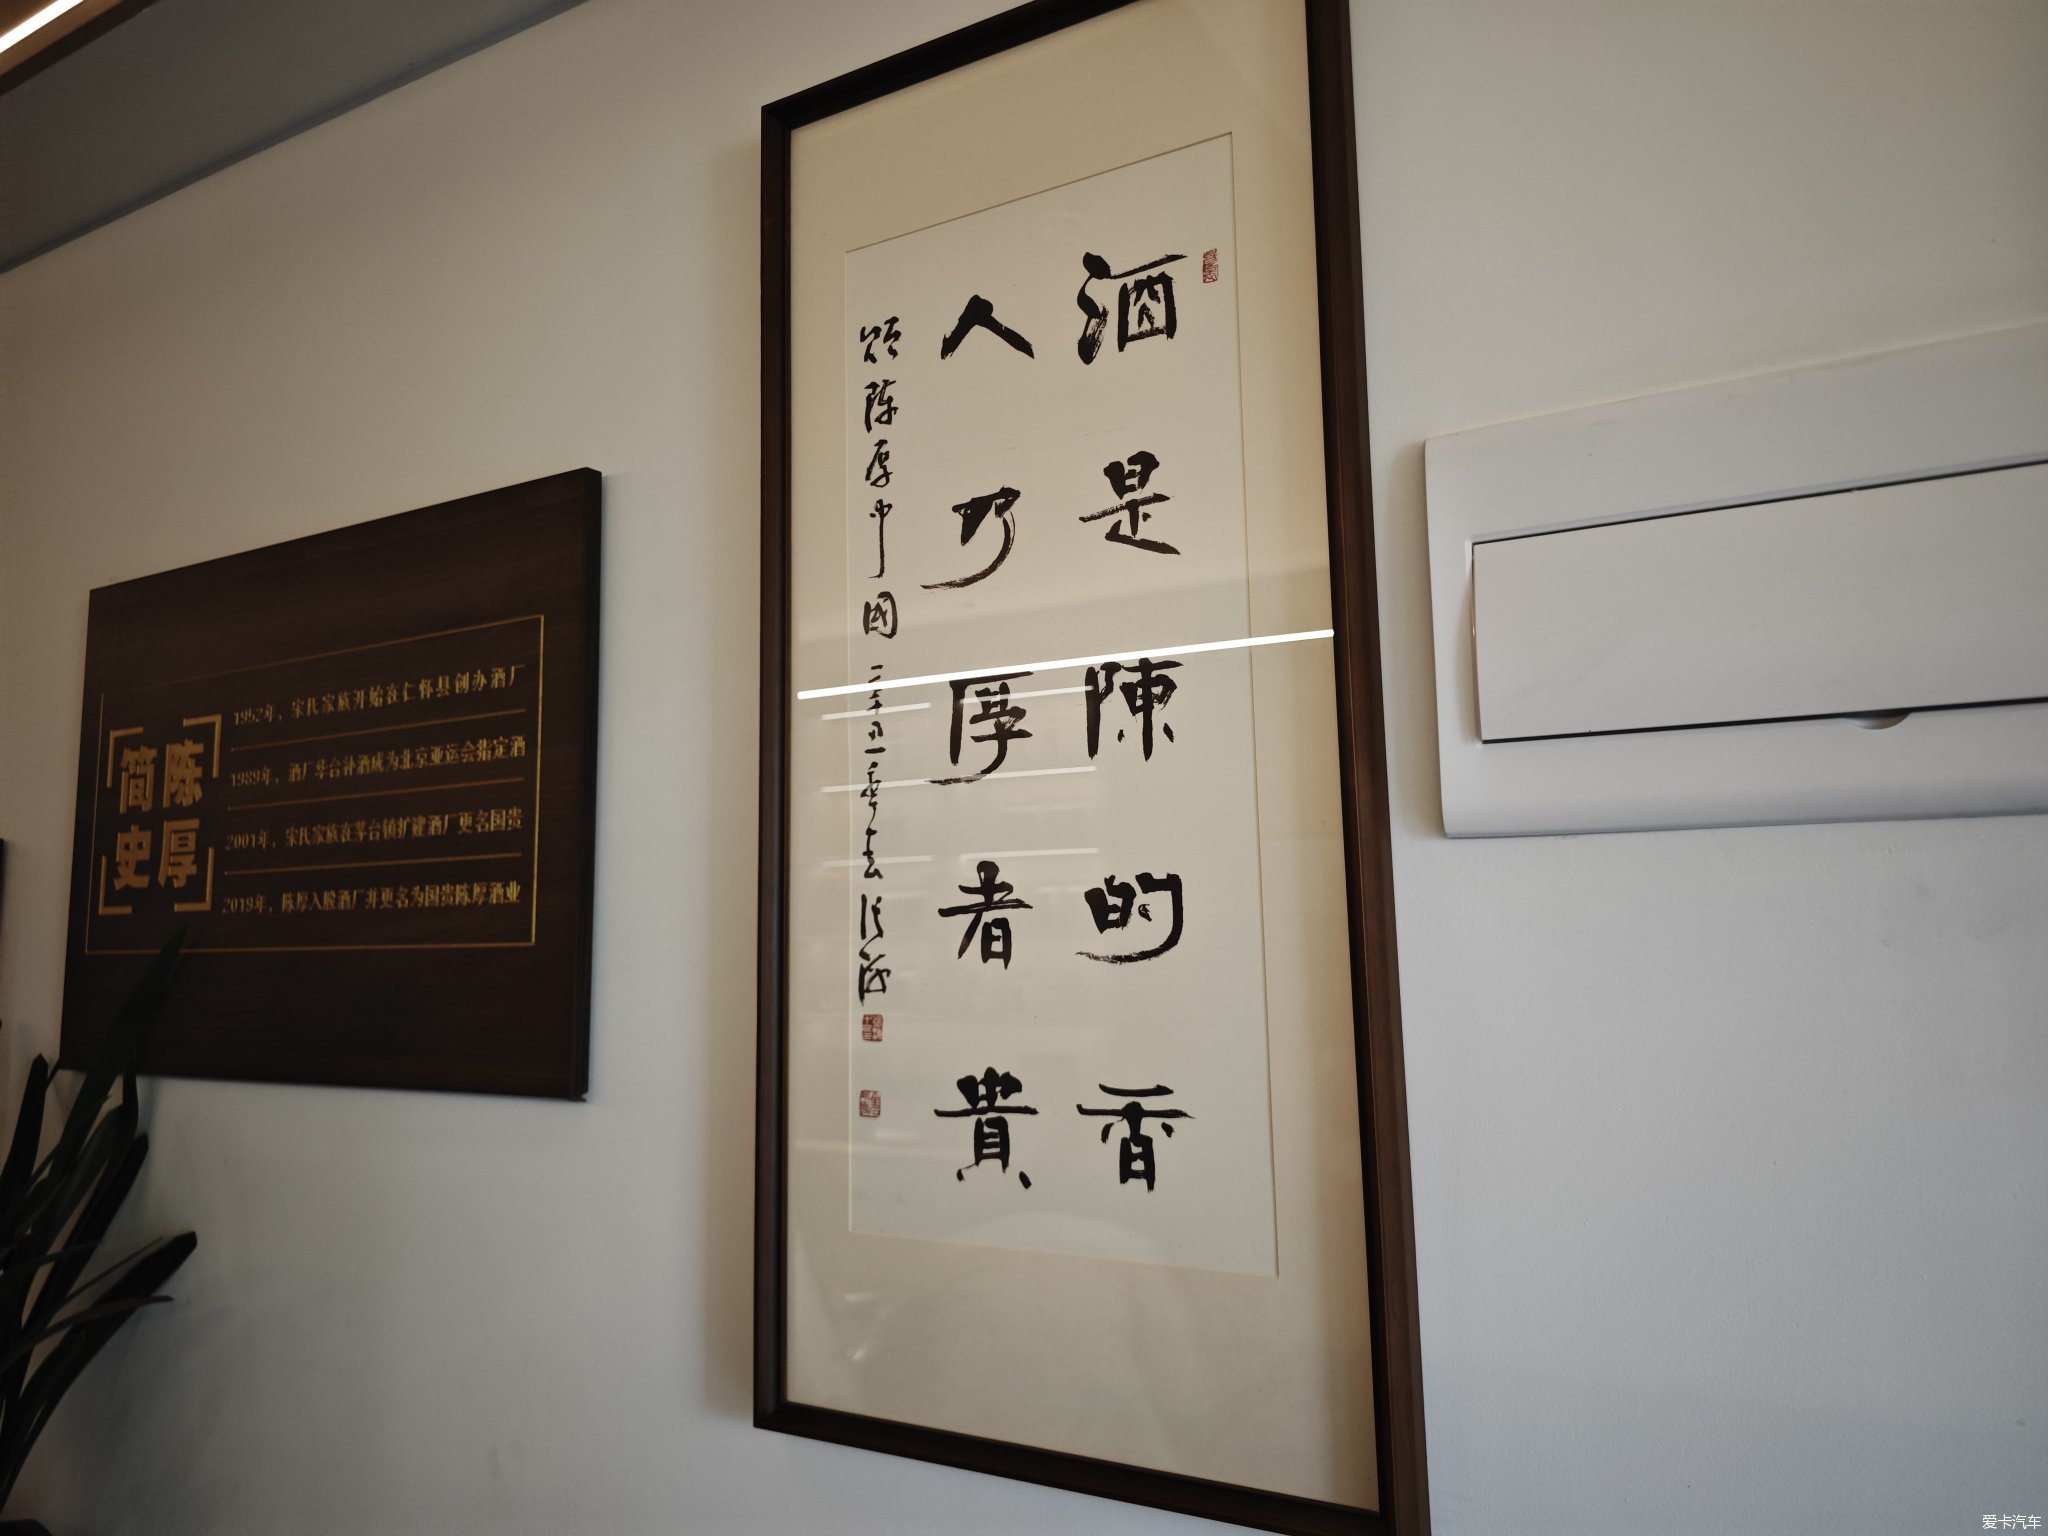 陈厚
简史
1952年，宋氏家族开始在仁怀县创办酒厂
1989年，酒厂华台补酒成为北京亚运会指定酒
2001年，宋氏家族在茅台镇扩建酒厂更名国贵
2019年，陈厚入股酒厂并更名为国贵陈厚酒业
酒是陳的香
人乃厚者貴
颂陈厚中國
爱卡汽车